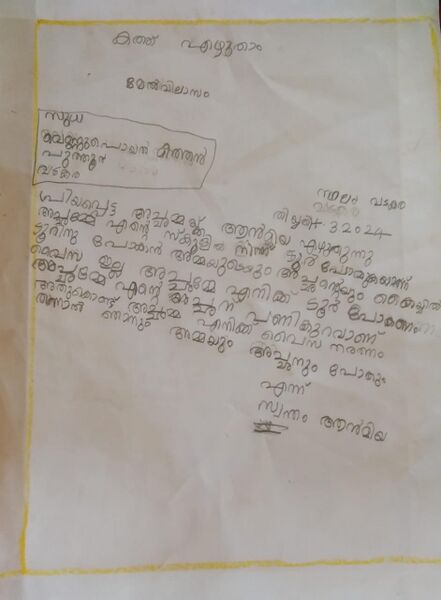 കത്ത് എഴുതാം
മേൽവിലാസം
സുധ
മീത്തൽ
പുത്തൂർ
വടകര
സ്ഥലം വടകര
തിയ്യതി 3 2024
പ്രിയപ്പെട്ട അച്ഛമ്മയ്ക്ക് ആൻമിയ എഴുതുന്നു
അച്ഛമ്മേ എന്റെ സ്കൂളിൽ നിന്ന് ടൂർ പോകുകയാണ്
ടൂറിനു പോകാൻ അമ്മയുടെയും അച്ഛന്റെയും കൈയ്യിൽ
പൈസ ഇല്ല അച്ഛമ്മേ എനിക്ക് ടൂർ പോകണം
അച്ഛമ്മേ എന്റെ അച്ഛന് പണികുറവാണ്
അതുകൊണ്ട് അച്ഛമ്മ എനിക്ക് പൈസ തരണം
തന്നാൽ ഞാനും അമ്മയും അച്ഛനും പോകും
എന്ന്
സ്വന്തം ആൻമിയ